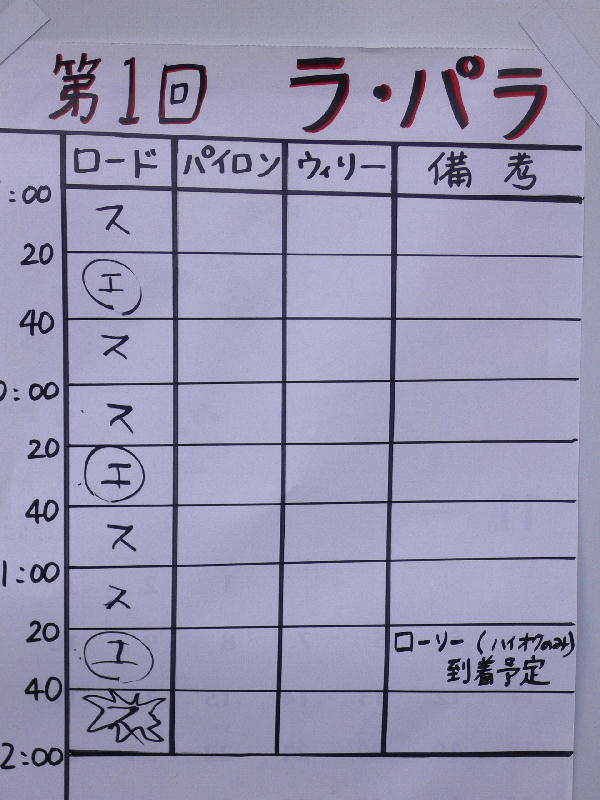 第1回 ラ・パラ
ロード パイロン ウィリー 備考
:00
ス
20
エ
40
ス
:00
ス
20
エ
40
ス
1:00
ス
20
エ ローリー(ハイオクのみ)
到着予定
40
ス
2:00